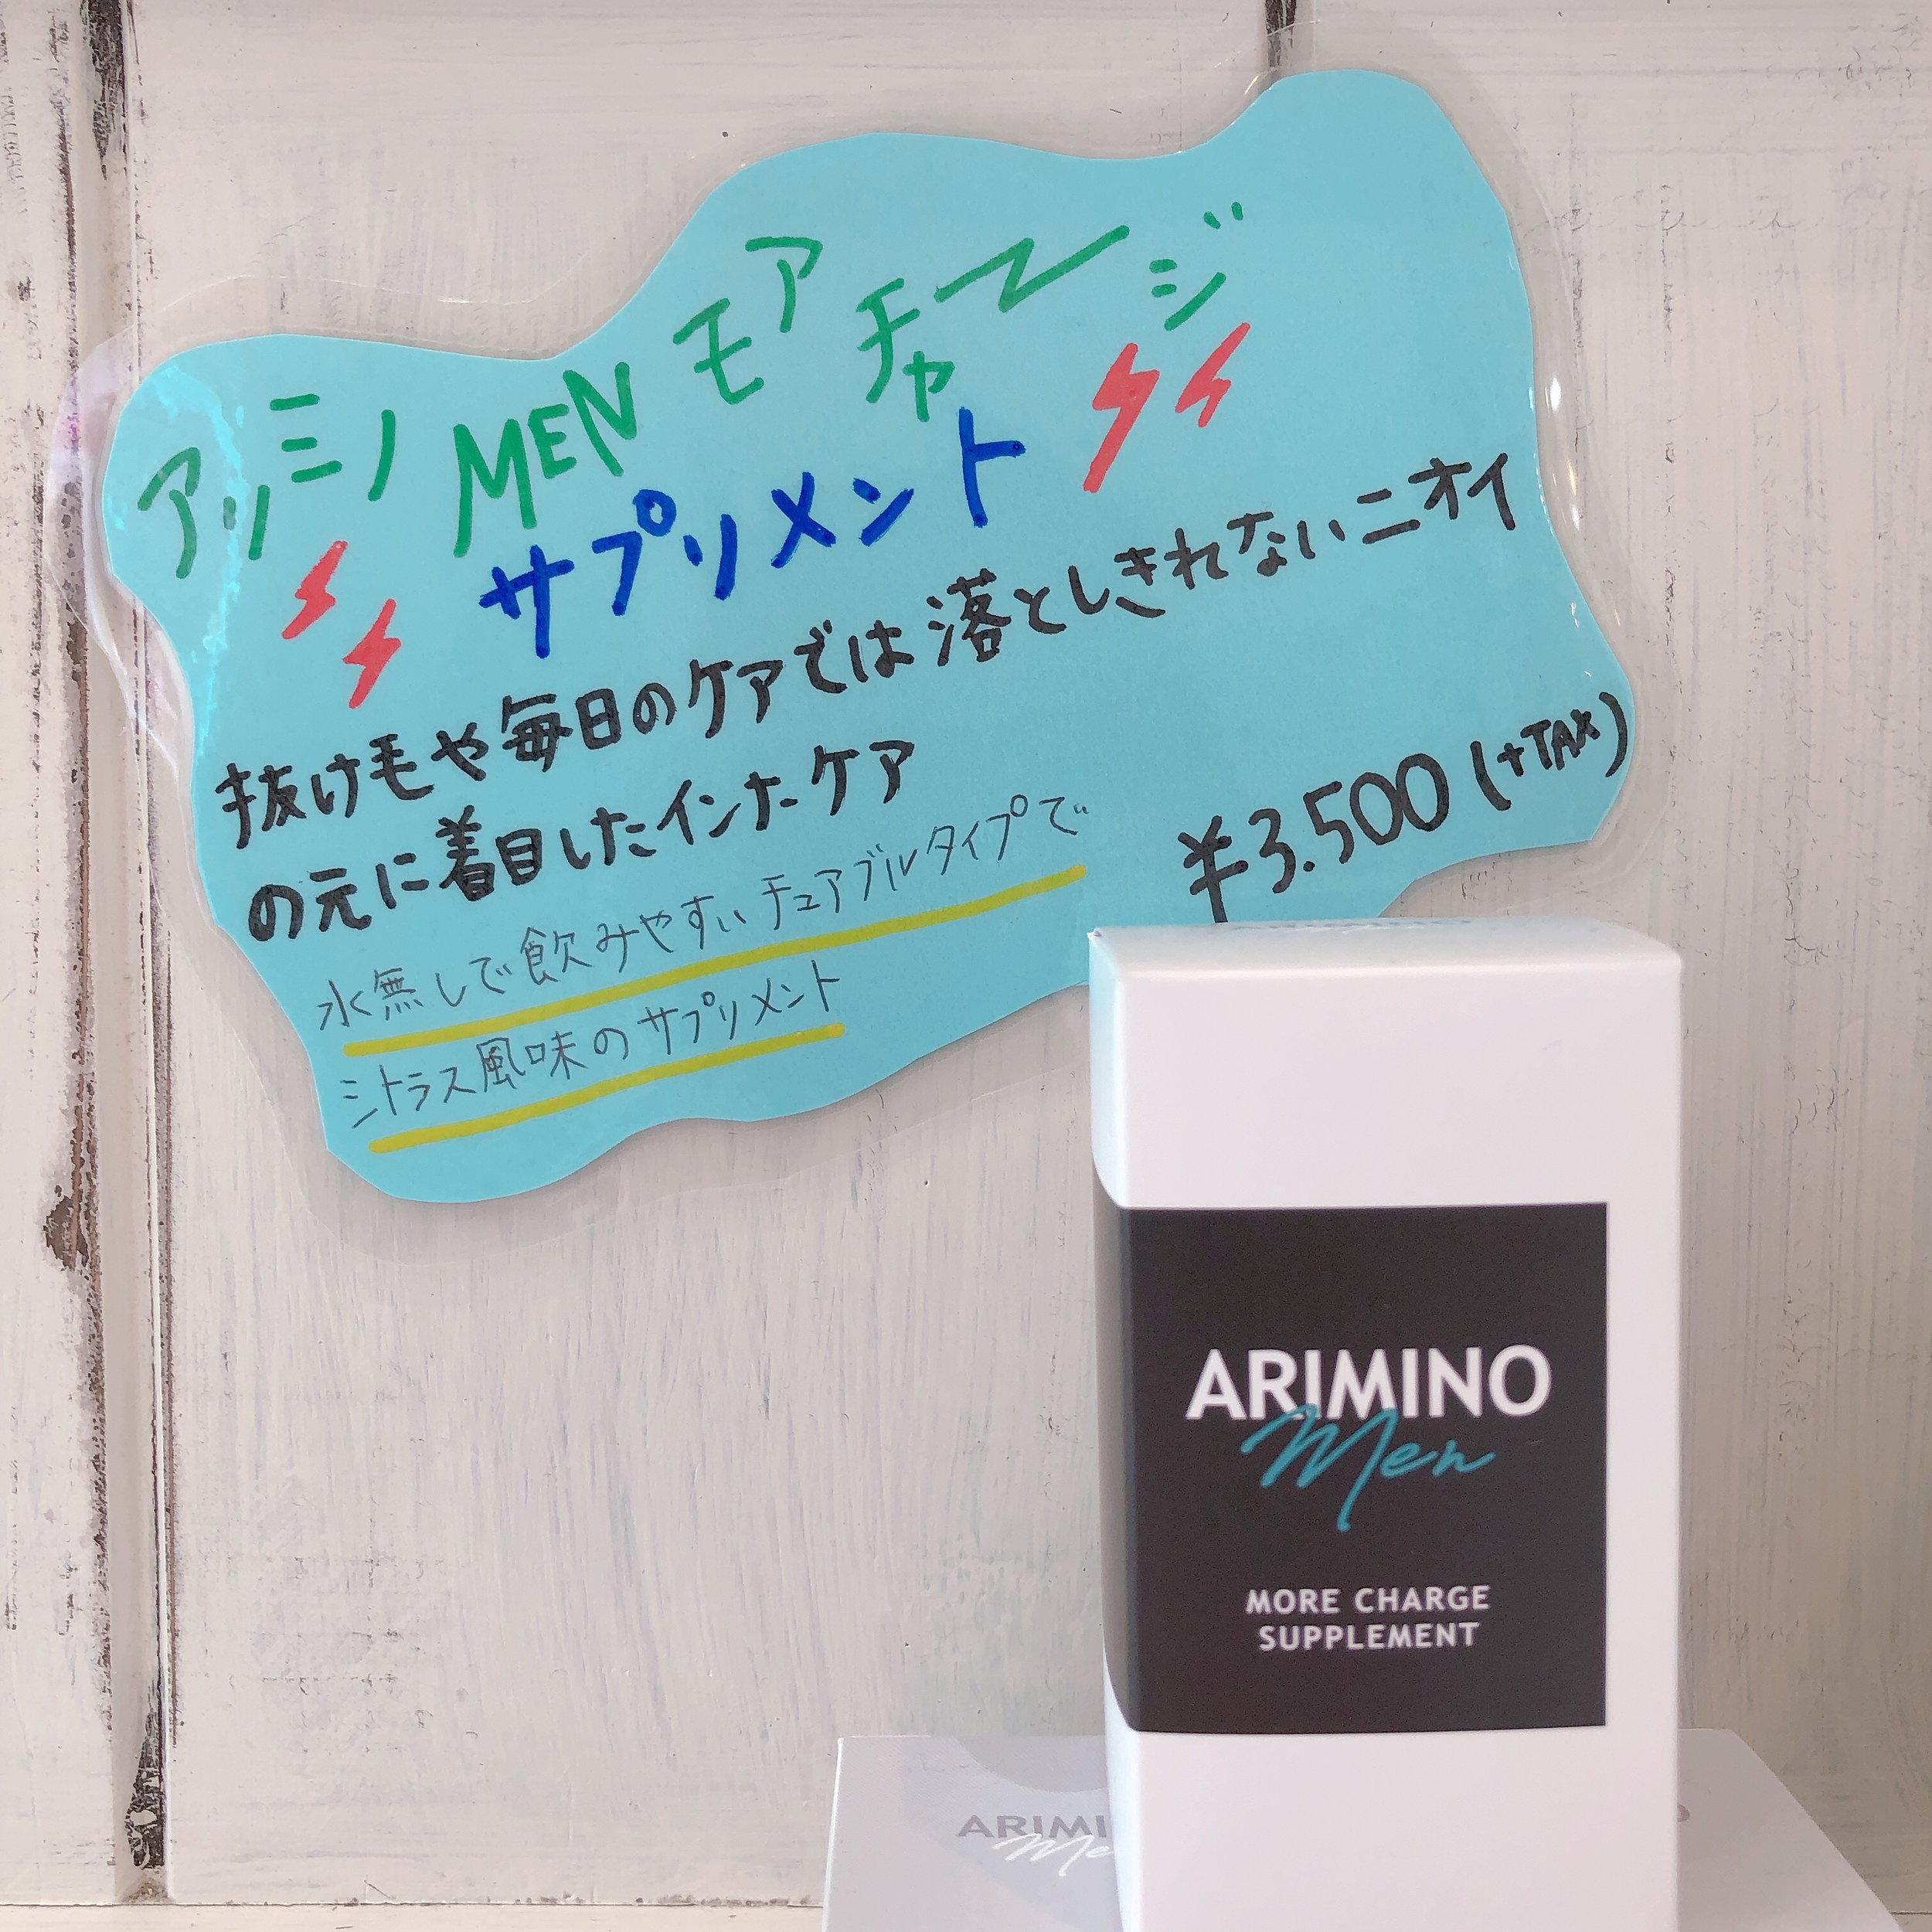 アリミノ MEN モア チャージ
サプリメント
抜け毛や毎日のケアでは落としきれないニオイ
の元に着目したインナーケア
水無しで飲みやすい チュアブルタイプで
シトラス風味のサプリメント
¥3.500 (+TAX)
ARIMINO
Men
MORE CHARGE
SUPPLEMENT
ARIMI
Me